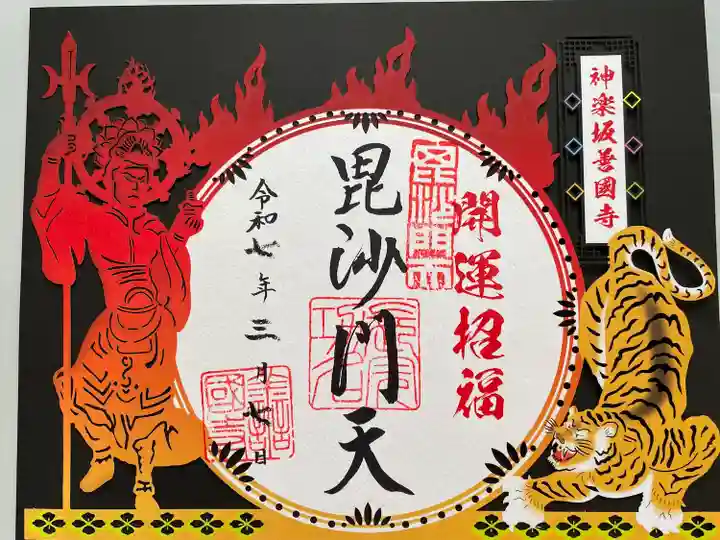 神楽坂善國寺
開運招福
毘沙門天
令和七年三月七日